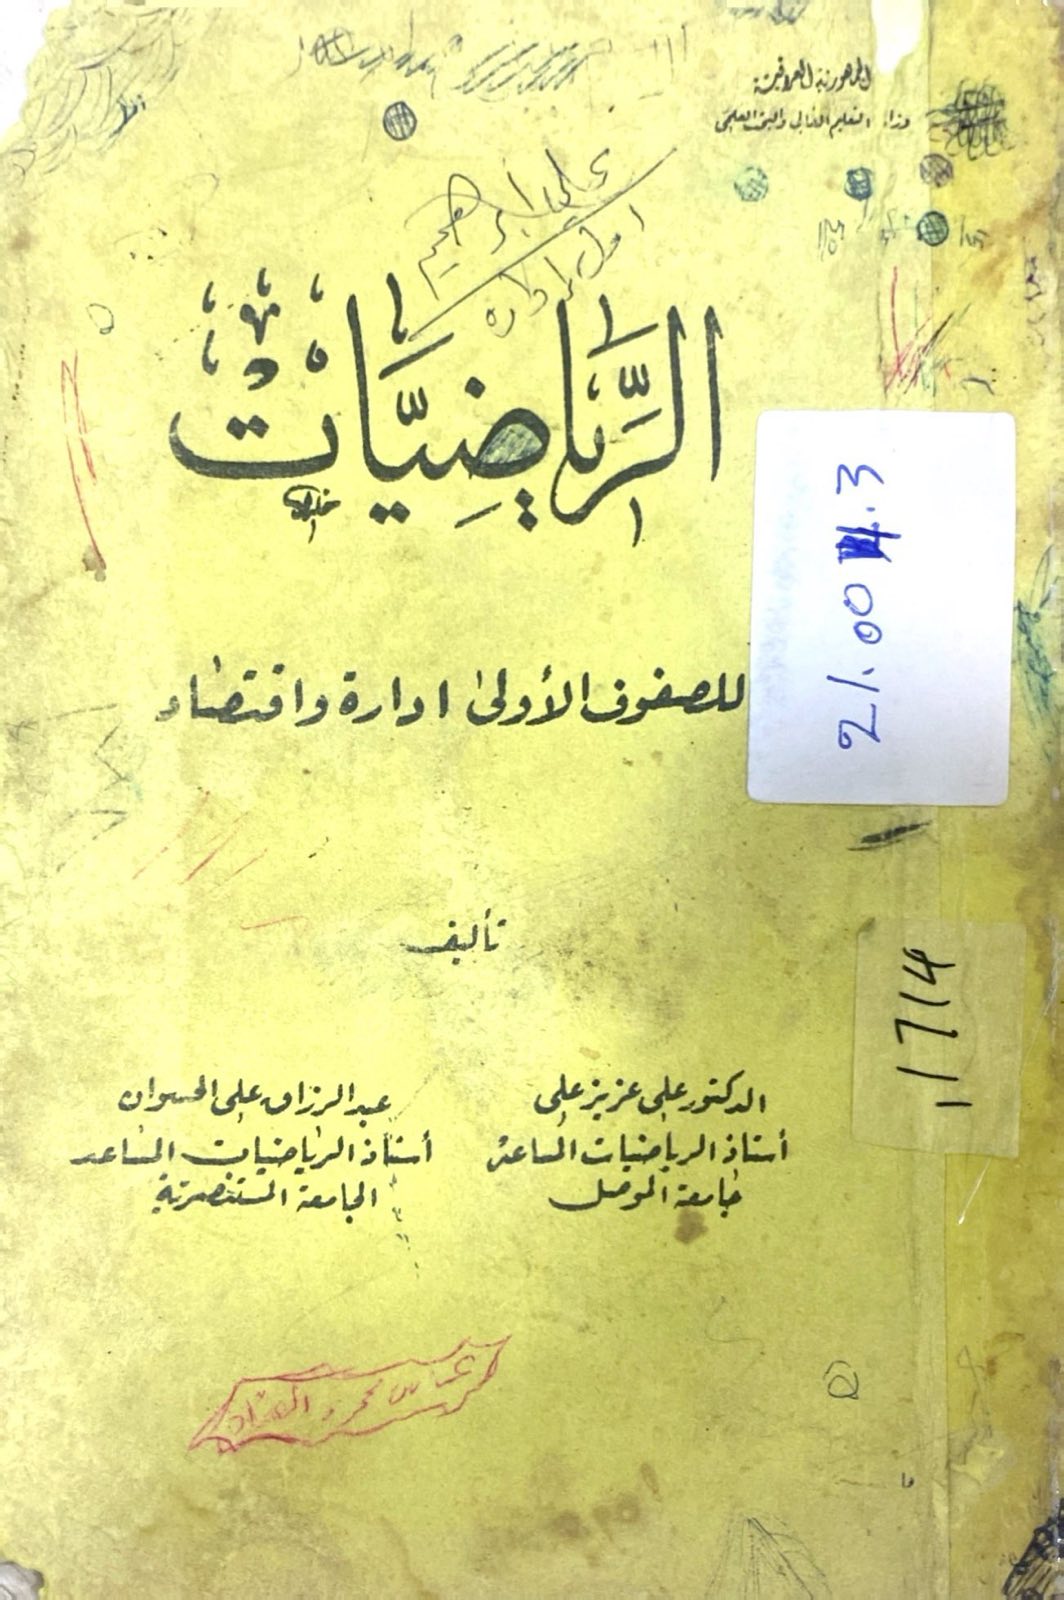 الجمهورية العراقية
وزارة التعليم العالي والبحث العلمي
علي ابراهيم
اول ادارة
الرِّيَاضِيَّات
21.00
.3
للصفوف الأولى ادارة واقتصاد
تأليف
1714
الدكتور علي عزيز علي
أستاذ الرياضيات المساعد
جامعة الموصل
عبد الرزاق علي الحسوان
أستاذ الرياضيات المساعد
الجامعة المستنصرية
عباس محمد